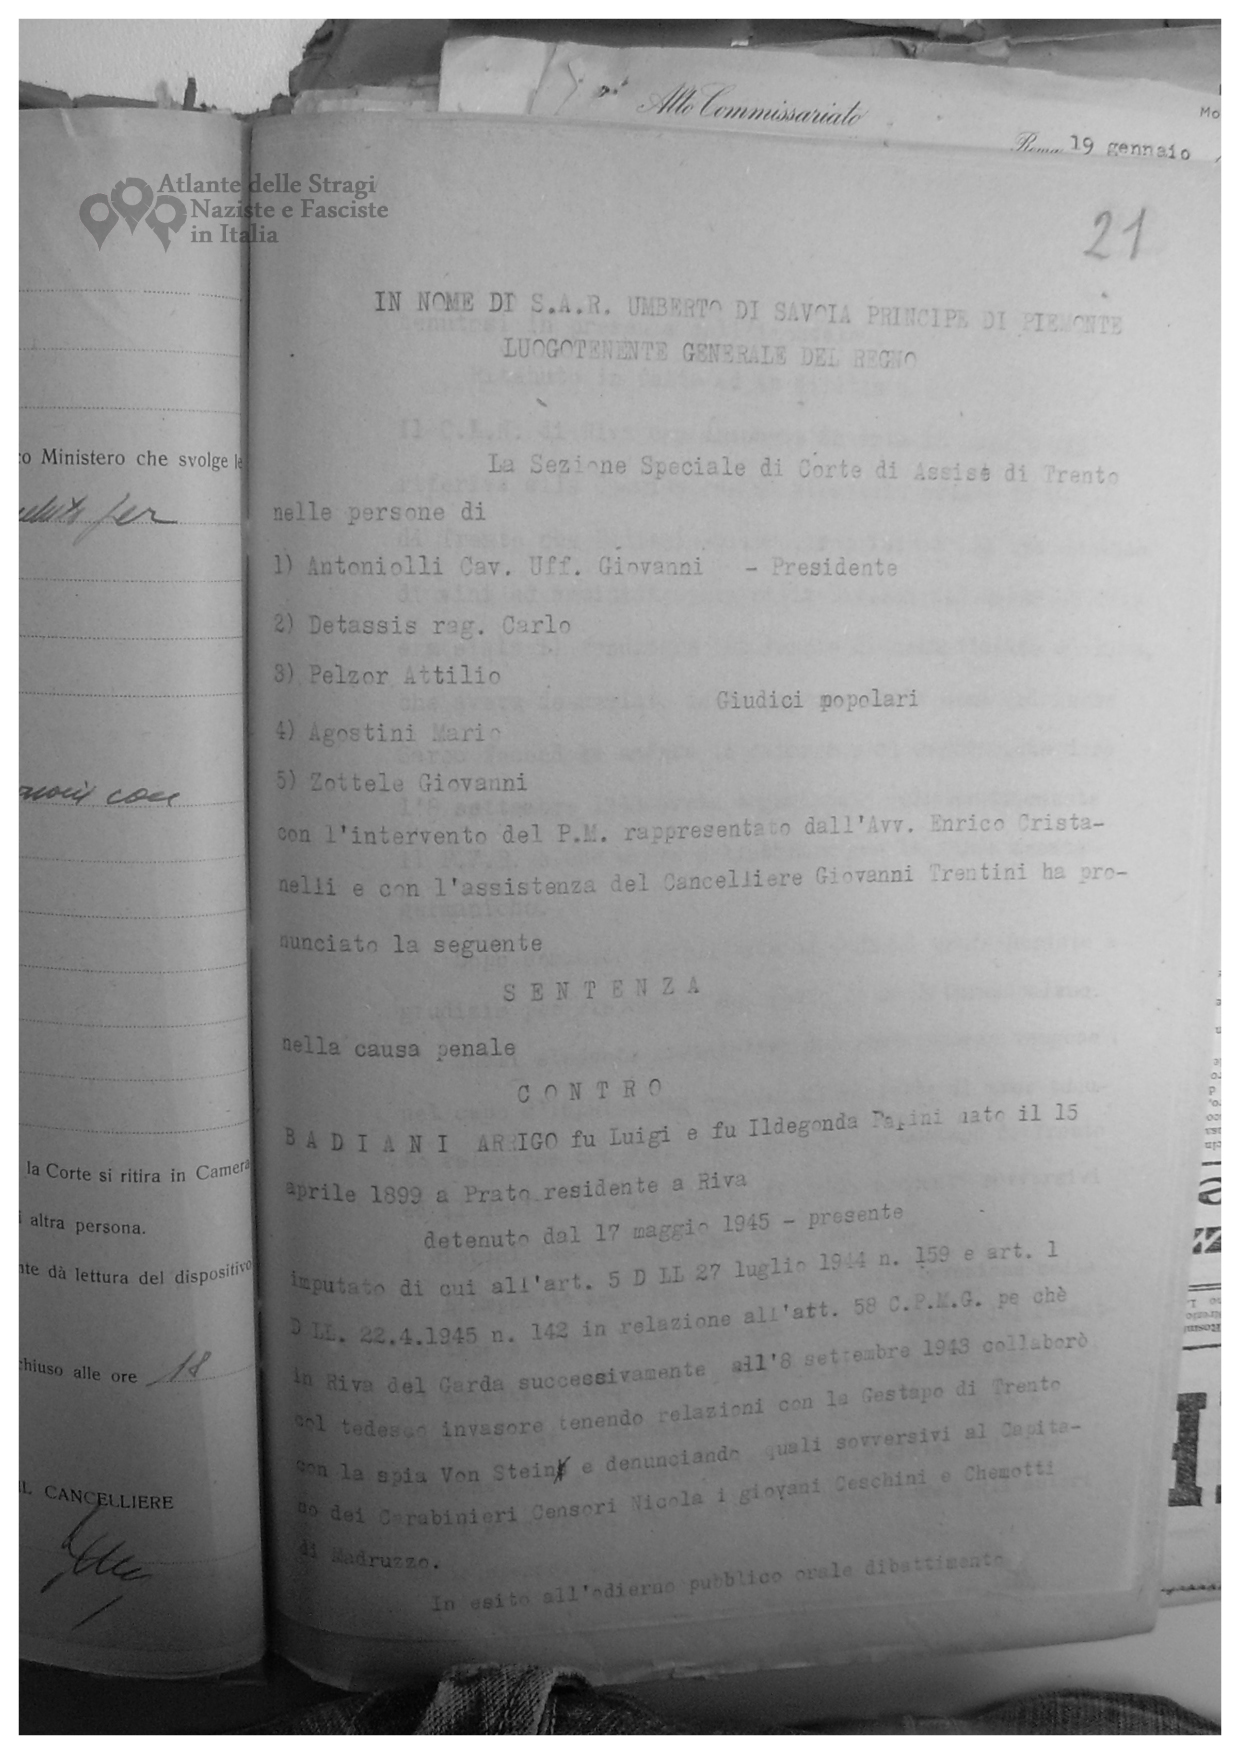 Alto Commissariato
Mo
Roma 19 gennaio
Atlante delle Stragi
Naziste e Fasciste
in Italia
21
IN NOME DI S.A.R. UMBERTO DI SAVOIA PRINCIPE DI PIEMONTE
LUOGOTENENTE GENERALE DEL REGNO
La Sezione Speciale di Corte di Assise di Trento
nelle persone di
1) Antoniolli Cav. Uff. Giovanni - Presidente
2) Detassis rag. Carlo
3) Pelzor Attilio
Giudici popolari
4) Agostini Mario
5) Zottele Giovanni
con l'intervento del P.M. rappresentato dall'Avv. Enrico Crista-
nelli e con l'assistenza del Cancelliere Giovanni Trentini ha pro-
nunciato la seguente
S E N T E N Z A
nella causa penale
C O N T R O
B A D I A N I ARRIGO fu Luigi e fu Ildegonda nato il 15
aprile 1899 a Prato residente a Riva
detenuto dal 17 maggio 1945 - presente
imputato di cui all'art. 5 D LL 27 luglio 1944 n. 159 e art. 1
D LL. 22.4.1945 n. 142 in relazione all'att. 58 C.P.M.G. pe chè
in Riva del Garda successivamente all'8 settembre 1943 collaborò
col tedesco invasore tenendo relazioni con la Gestapo di Trento
con la spia Von Stein e denunciando quali sovversivi al Capita-
no dei Carabinieri Censori Nicola i giovani Ceschini e Chemotti
di Madruzzo.
In esito all'odierno pubblico orale dibattimento
co Ministero che svolge le
per
con
la Corte si ritira in Camera
altra persona.
nte dà lettura del dispositivo
chiuso alle ore 18
IL CANCELLIERE